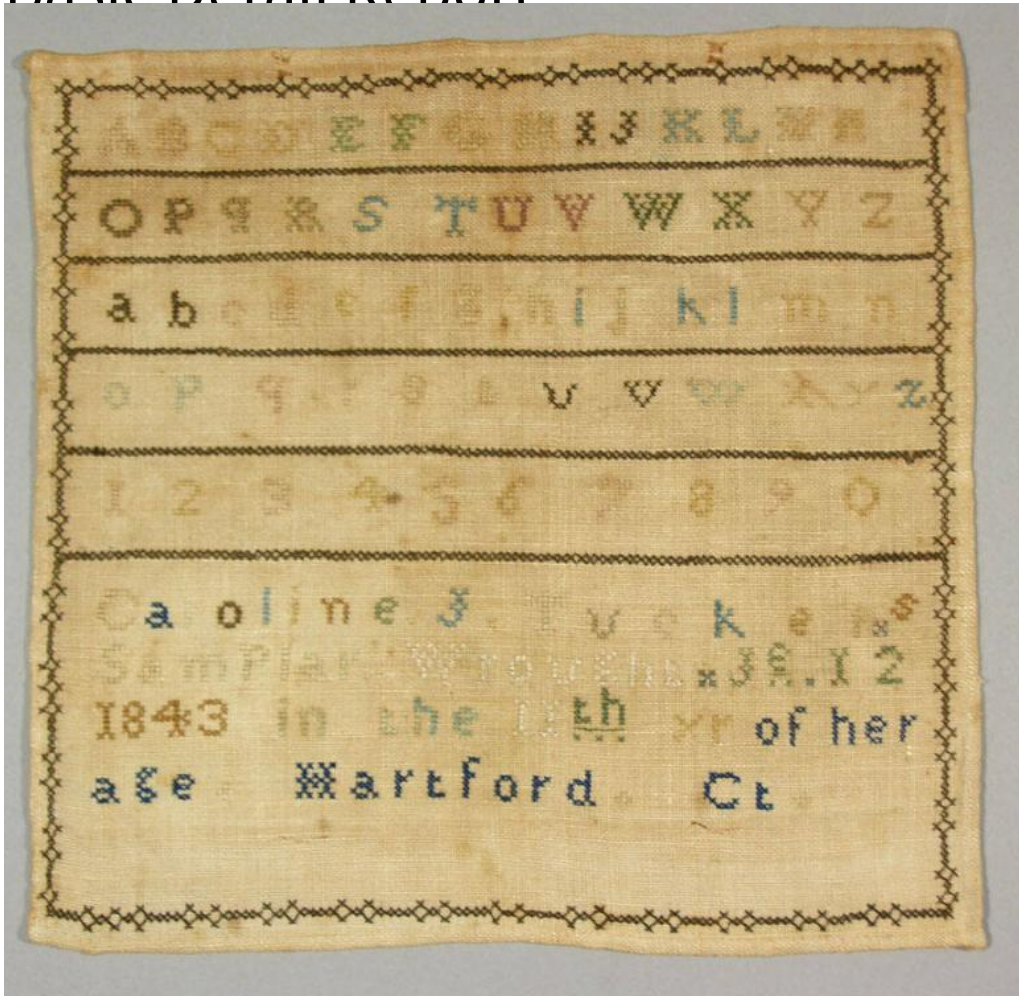 A B C D E F G H I J K L M N
O P Q R S T U V W X Y Z
a b c d e f g h i j k l m n
o p q r s t u v w x y z
1 2 3 4 5 6 7 8 9 0
Caroline J. Tucker s
Samplar Wrought
1843 in the 11th yr of her
age Hartford Ct